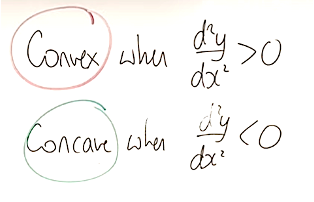 Convex when d²y/dx² > 0
Concave when d²y/dx² < 0